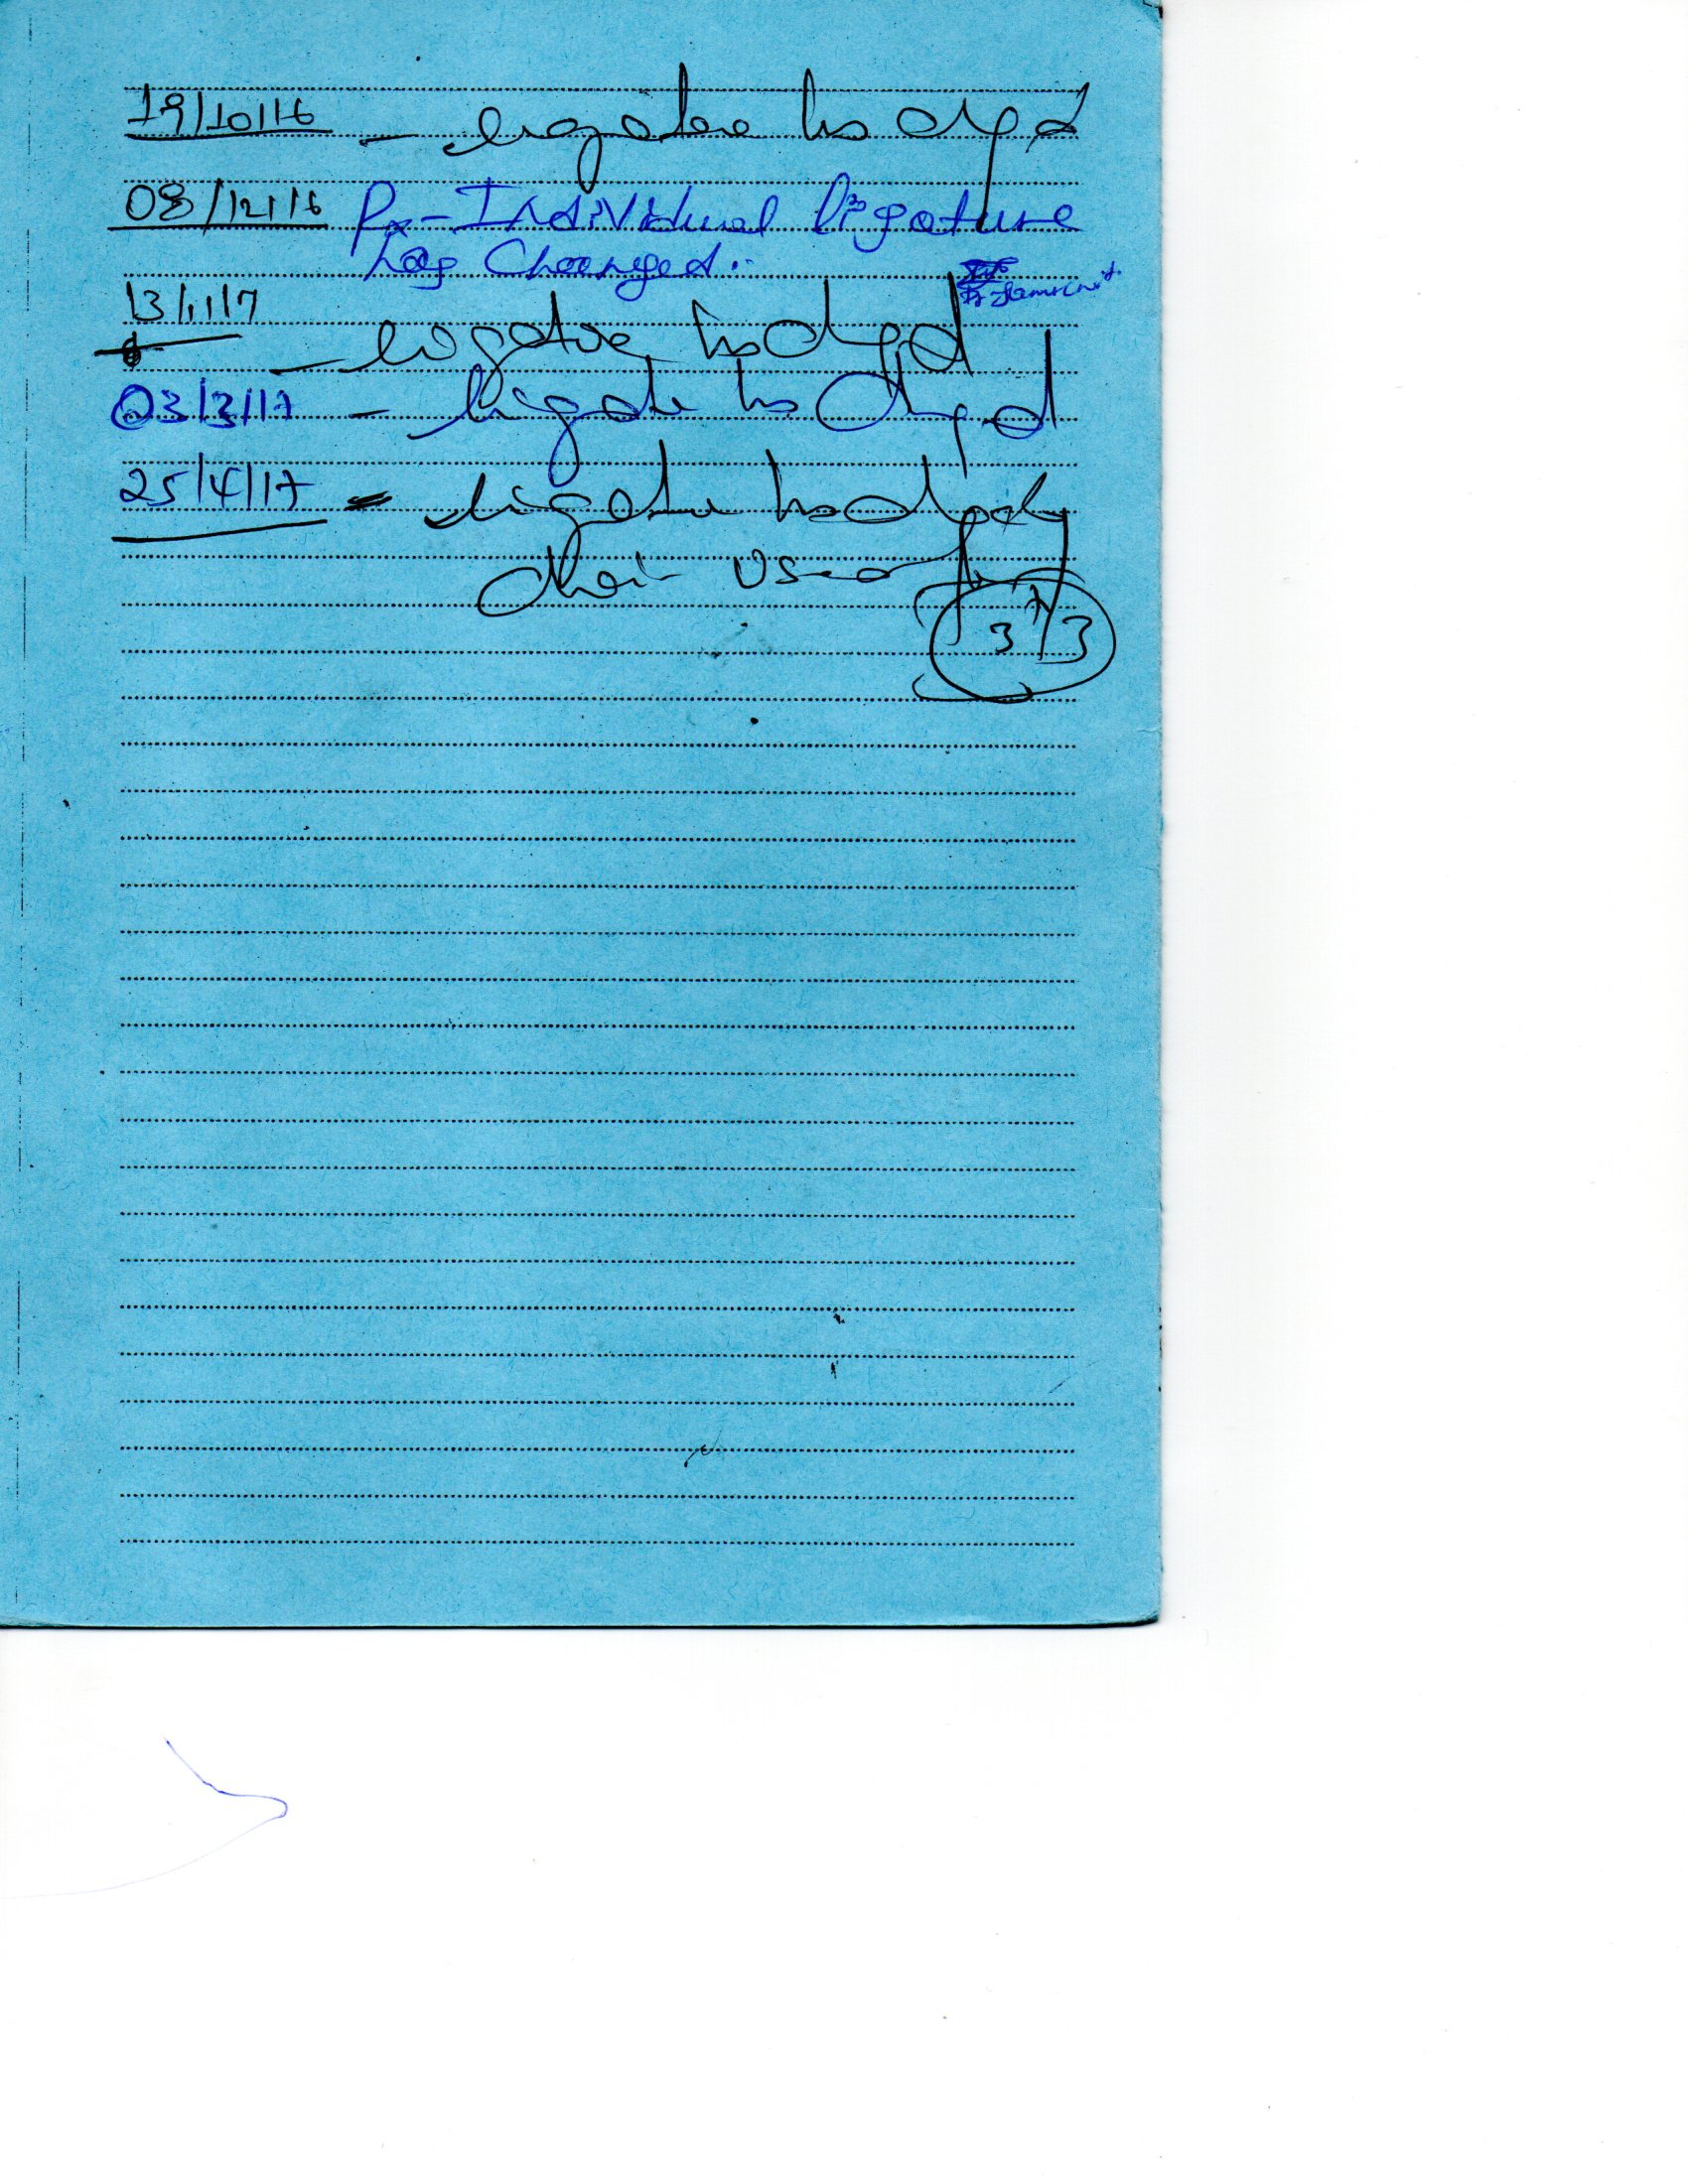 19/10/16 - ligature has chgd
08/12/16 Rx - Individual ligature
has Changed.
13/1/17 - ligature has chgd
03/3/17 - ligature has chgd
25/4/17 - ligature has chgd
chain
3 3